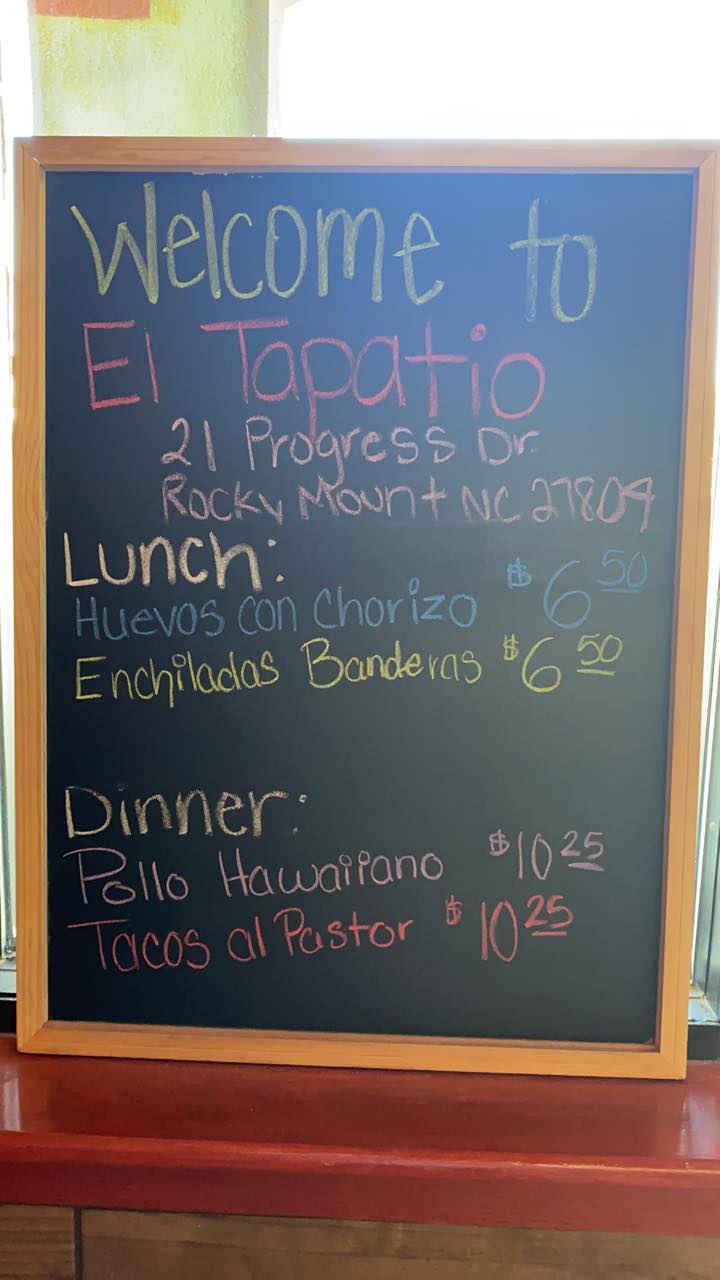 Welcome to
El Tapatio
21 Progress Dr.
Rocky Mount NC 27804
Lunch:
Huevos con Chorizo $6 50
Enchiladas Banderas $6 50
Dinner:
Pollo Hawaiiano $10 25
Tacos al Pastor $10 25